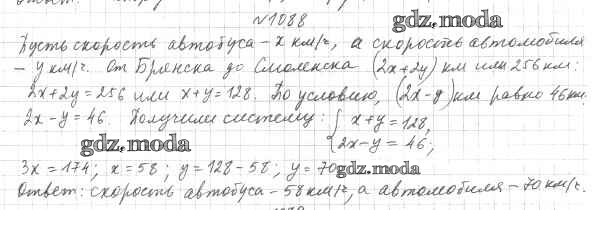 №1088
gdz.moda
Пусть скорость автобуса – x км/ч, а скорость автомобиля
– y км/ч. От Брянска до Смоленска (2x+2y) км или 256 км:
2x+2y=256 или x+y=128. По условию, (2x-y) км равно 46 км.
2x-y=46. Получили систему: { x+y=128,
2x-y=46;
gdz.moda
3x=174; x=58; y=128-58; y=70
gdz.moda
Ответ: скорость автобуса – 58 км/ч, а автомобиля – 70 км/ч.